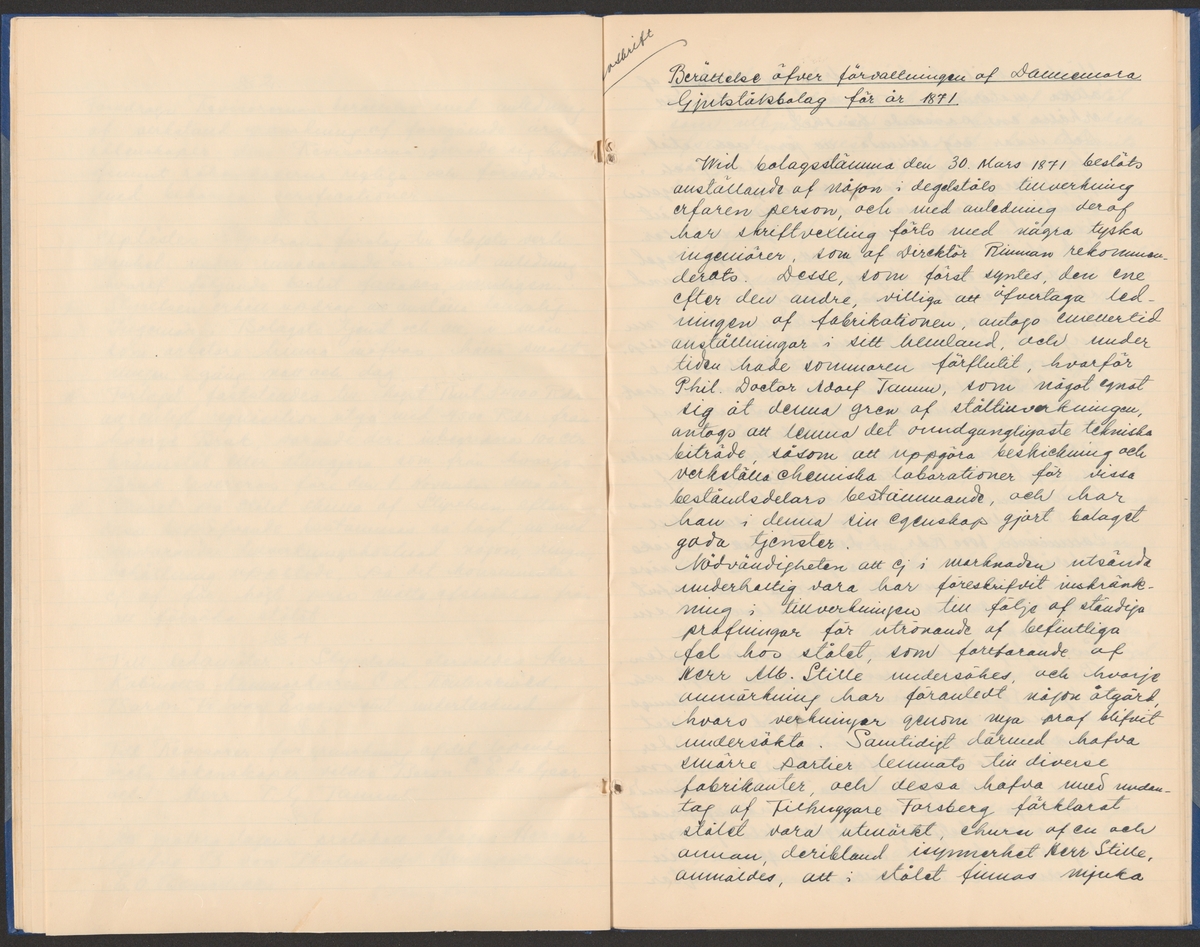 Avskrift
Berättelse öfver förvaltningen af Dannemora
Gjutstålsbolag för år 1871.
Wid bolagsstämma den 30. Mars 1871 beslöts
anställande af någon i degelståls tillverkning
erfaren person, och med anledning deraf
har skriftvexling förts med några tyska
ingeniörer, som af Direktör Rinman rekommen-
derats. Desse, som först syntes, den ene
efter den andre, villiga att öfvertaga led-
ningen af fabrikationen, antogo emellertid
anställningar i sitt hemland, och under
tiden hade sommaren förflutit, hvarför
Phil. Doctor Adolf Tamm, som något egnat
sig åt denna gren af ståltillverkningen,
antogs att lemna det oundgängligaste tekniska
biträde, såsom att uppgöra beskickning och
verkställa chemiska laborationer för vissa
beståndsdelars bestämmande, och har
han i denna sin egenskap gjort bolaget
goda tjenster.
Nödvändigheten att ej i marknaden utsända
underhaltig vara har föreskrifvit inskränk-
ning i tillverkningen till följe af ständiga
profningar för utrönande af befintliga
fel hos stålet, som företrädande af
Herr Alb. Stille undersökes, och hvarje
anmärkning har föranledt någon åtgärd,
hvars verkningar genom nya prof blifvit
undersökta. Samtidigt därmed hafva
smärre partier lemnats till diverse
fabrikanter, och dessa hafva med undan-
tag af Filhuggare Forsberg förklarat
stålet vara utmärkt, ehuru af en och
annan, deribland isynnerhet Herr Stille,
anmäldes, att i stålet finnas mjuka